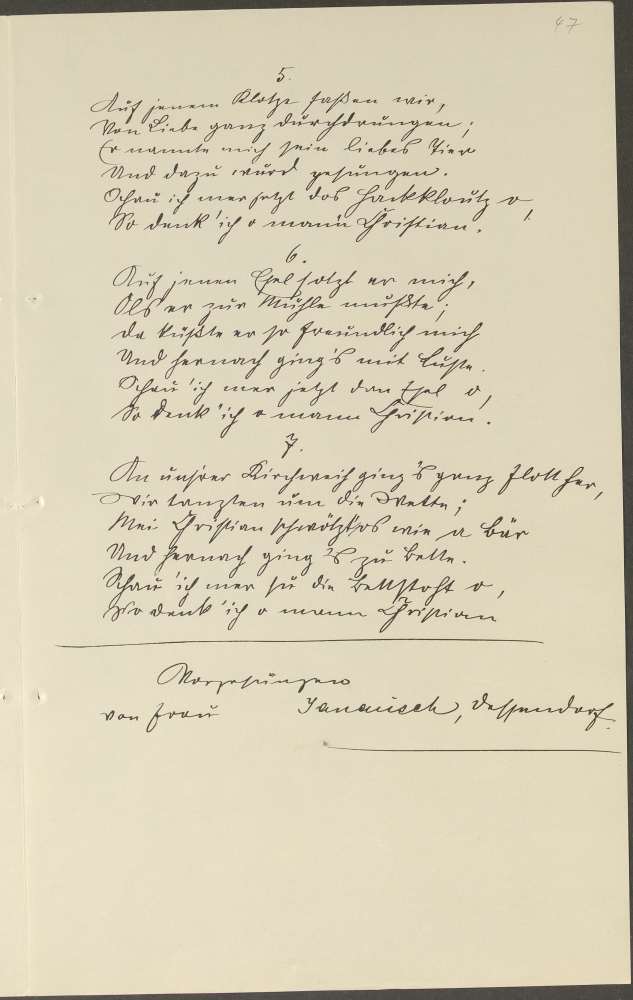 47
5.
Auf jenem Klotze saßen wir,
Von Liebe ganz durchdrungen;
Er nannte mich sein liebes Tier
Und dazu wurd gesungen.
Schau ich mer jetzt dos Hackkloutz o,
So denk' ich o mann Christian.
6.
Auf jenen Esel setzt er mich,
Als er zur Mühle mußte;
Da küßte er so freundlich mich
Und hernach ging's mit Luste.
Schau' ich mer jetzt dan Esel o,
So denk' ich o mann Christian.
7.
An unsrer Kirchweih ging's ganz flott her,
Wir tanzten um die Wette;
Mei Christian schwötzt's wie a Bär
Und hernach ging's zu Bette.
Schau' ich mer su die Bettstoht o,
So denk' ich o mann Christian
Vorgesungen
von Frau Janausch, Dessendorf.